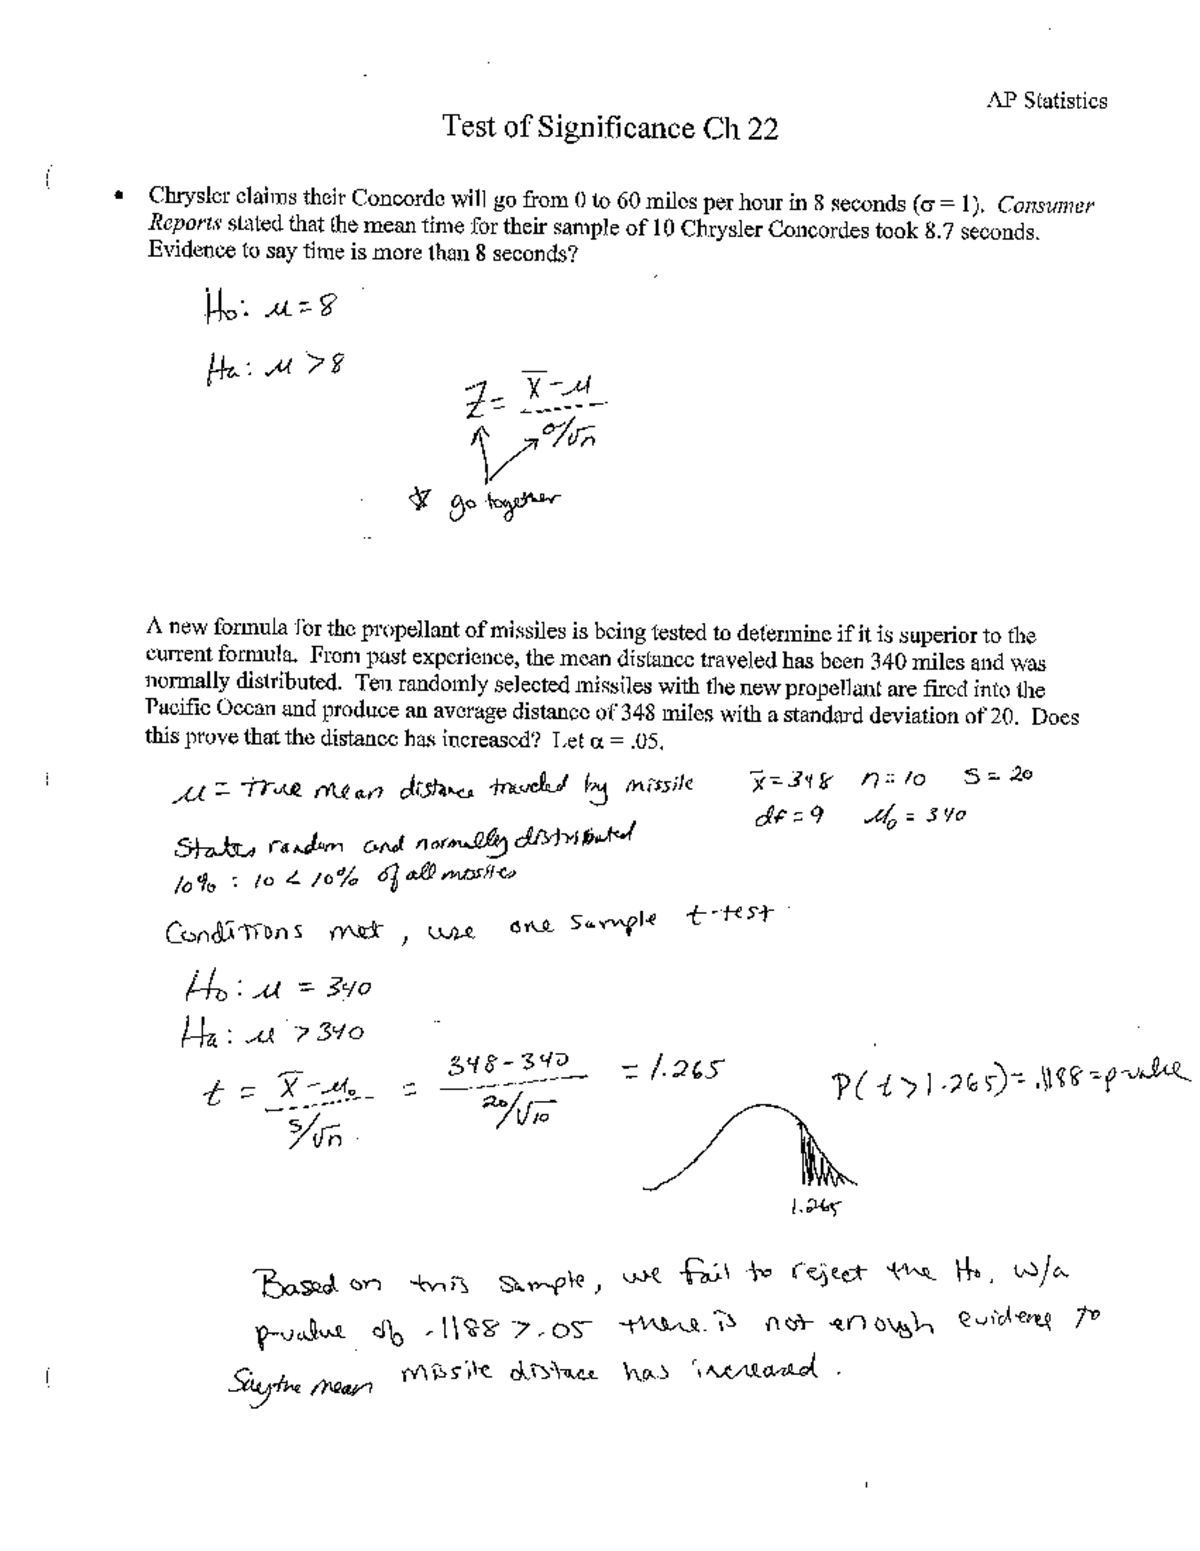 AP Statistics
Test of Significance Ch 22
• Chrysler claims their Concorde will go from 0 to 60 miles per hour in 8 seconds (σ = 1). Consumer
Reports stated that the mean time for their sample of 10 Chrysler Concordes took 8.7 seconds.
Evidence to say time is more than 8 seconds?
Ho: μ = 8
Ha: μ > 8
Z = (x̄ - μ) / (σ/√n)
☆ go together
A new formula for the propellant of missiles is being tested to determine if it is superior to the
current formula. From past experience, the mean distance traveled has been 340 miles and was
normally distributed. Ten randomly selected missiles with the new propellant are fired into the
Pacific Ocean and produce an average distance of 348 miles with a standard deviation of 20. Does
this prove that the distance has increased? Let α = .05.
μ = true mean distance traveled by missile x̄ = 348 n = 10 S = 20
df = 9 μ₀ = 340
States random and normally distributed
10% : 10 < 10% of all missiles
Conditions met, use one sample t-test
Ho: μ = 340
Ha: μ > 340
t = (x̄ - μ₀) / (s/√n) = (348 - 340) / (20/√10) = 1.265 P(t > 1.265) = .1188 = p-value
1.265
Based on this sample, we fail to reject the Ho. w/a
p-value of .1188 > .05 there is not enough evidence to
say the mean missile distace has increased.